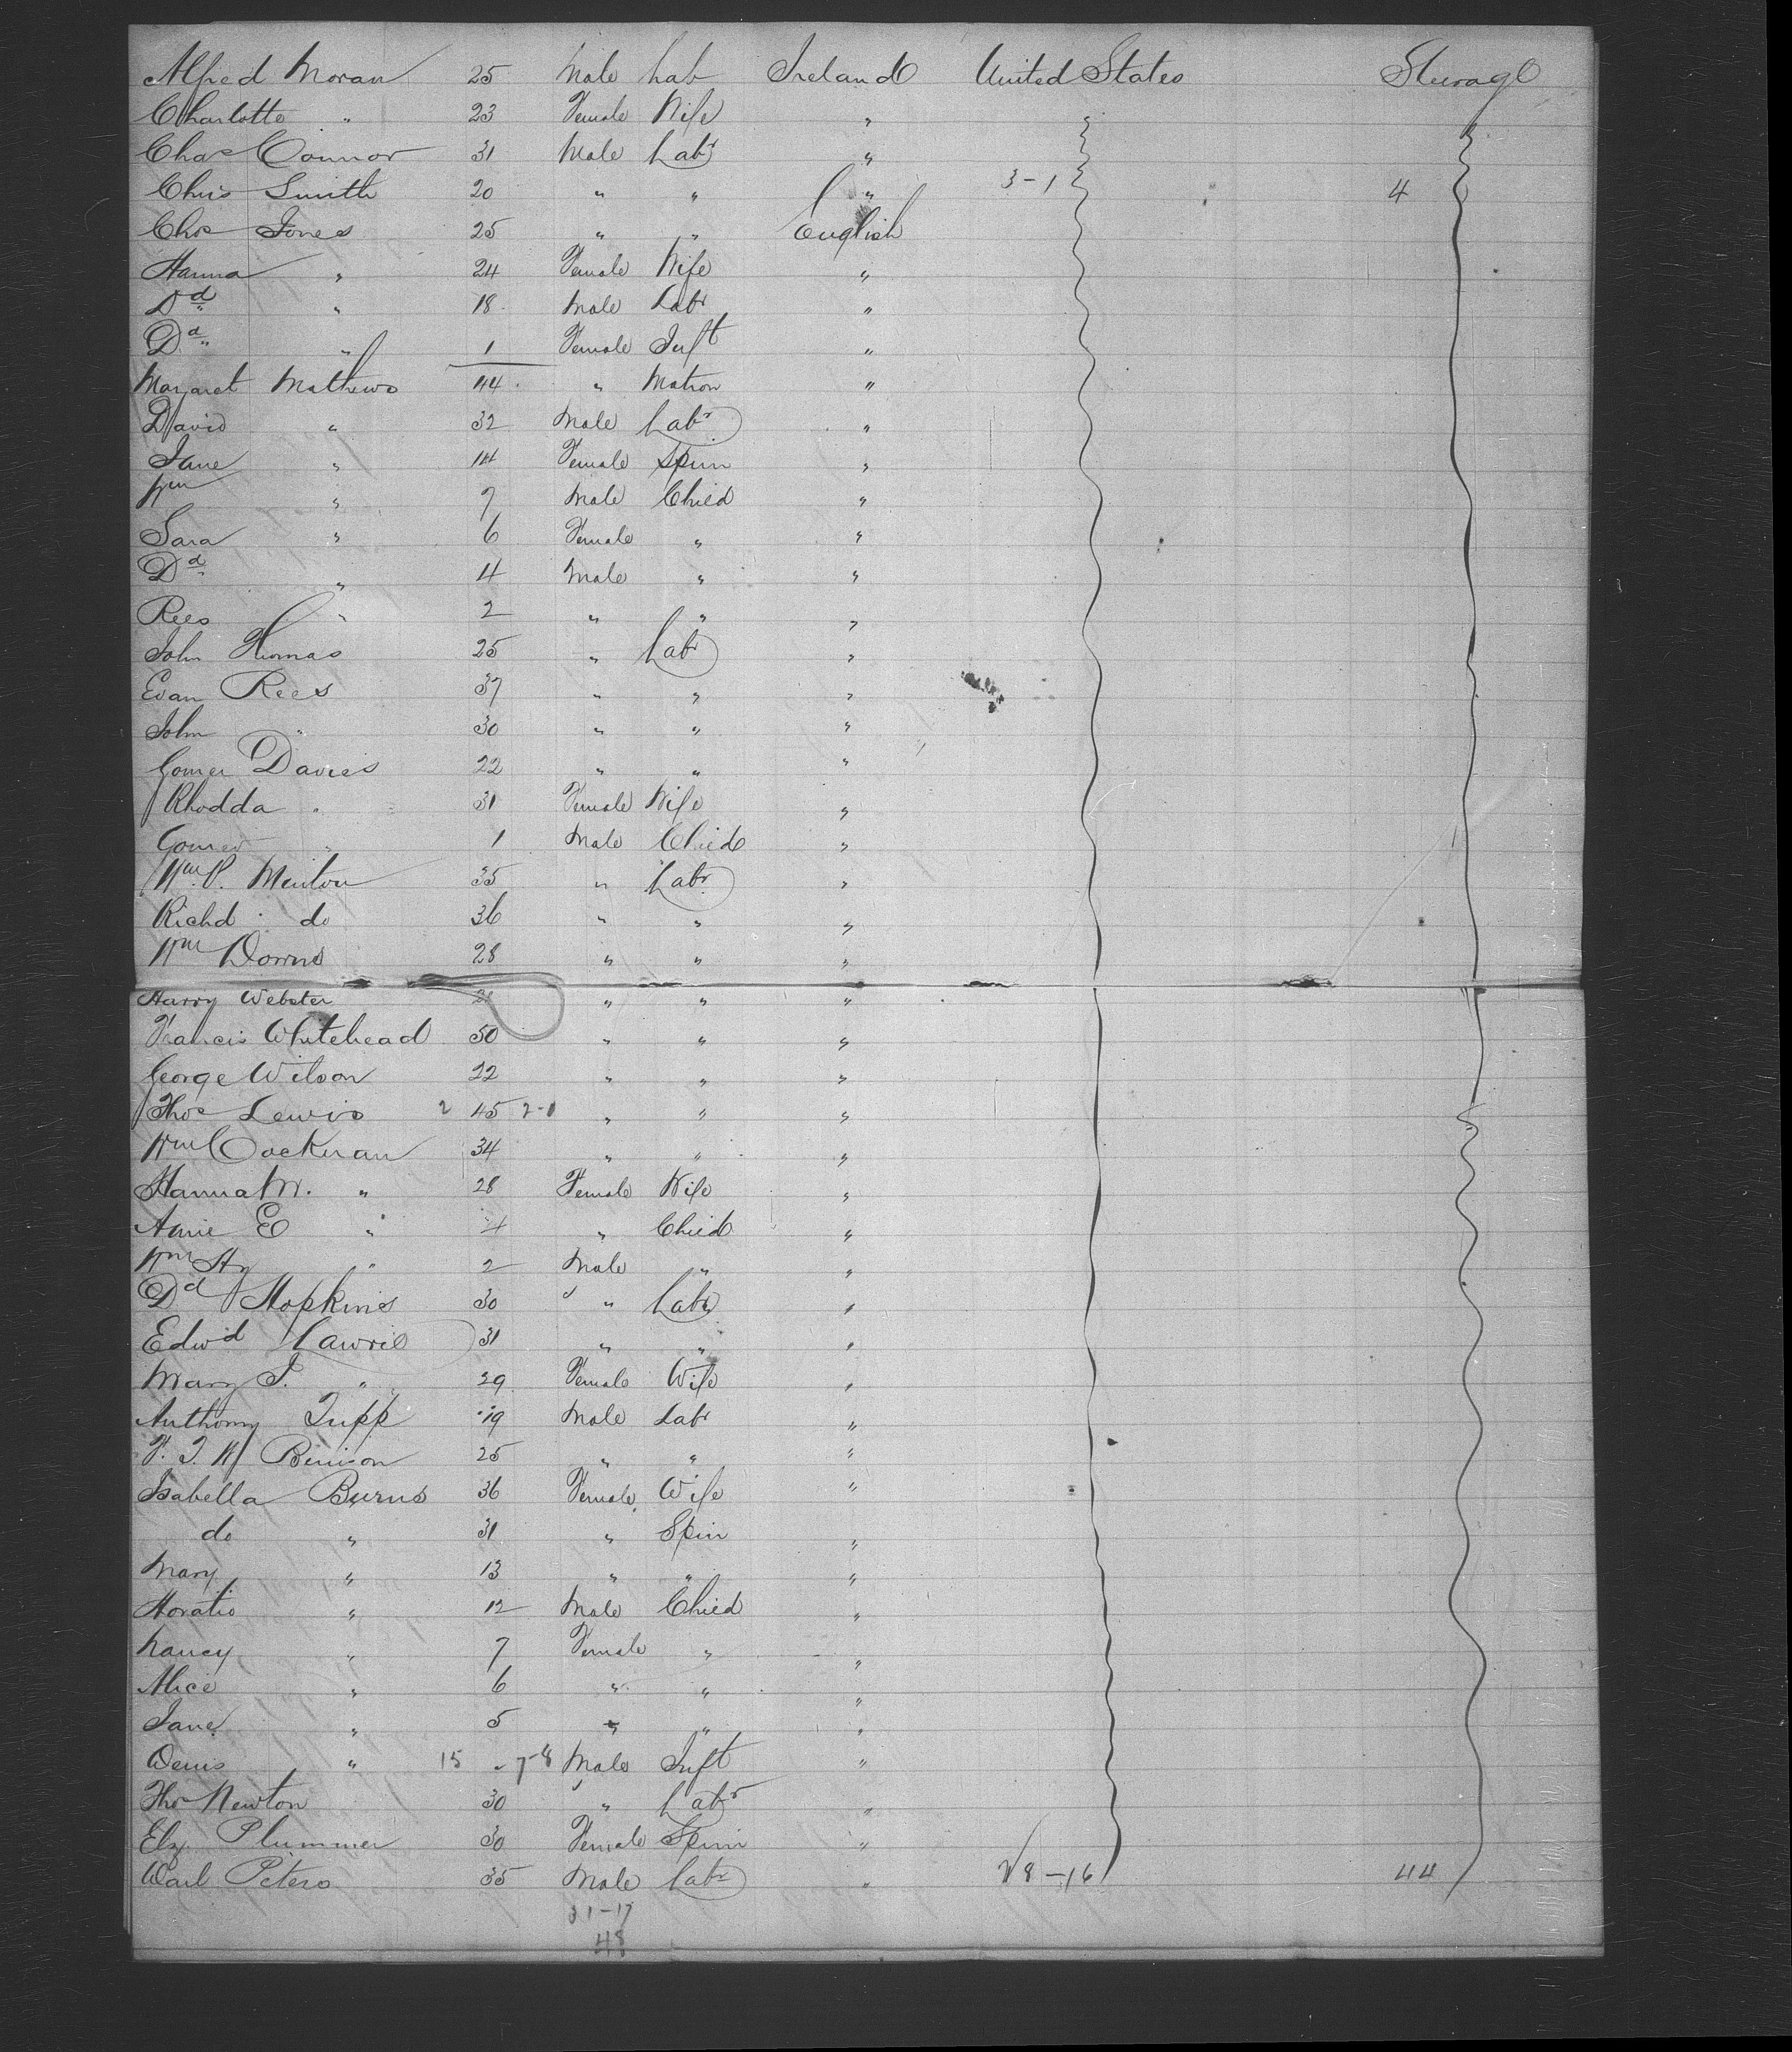 Alfred Moran 25 Male Lab Ireland United States Steerage
Charlotte " 23 Female Wife "
Chas Connor 31 Male Labr "
Chris Smith 20 " " " 3-1 4
Chas Jones 25 " " English
Hanna " 24 Female Wife "
Dd " 18 Male Labr "
Dd " 1 Female Inft "
Margaret Mathews 44 " Matron "
David " 32 Male Labr "
Jane " 14 Female Spin "
Wm " 7 Male Child "
Sara " 6 Female " "
Dd " 4 Male " "
Rees " 2 " " "
John Thomas 25 " Labr "
Evan Rees 37 " " "
John " 30 " " "
Gomer Davies 22 " " "
Rhodda " 31 Female Wife "
Gomer " 1 Male Child "
Wm. P. Minton 35 " Labr "
Richd do 36 " " "
Wm Downs 28 " " "
Harry Webster " " "
Francis Whitehead 50 " " "
George Wilson 22 " " "
Thos Lewis 2 45 2-0 " " "
Wm Cockeran 34 " " "
Hanna M. " 28 Female Wife "
Annie E " 4 " Child "
Wm Hy " 2 Male " "
Dd Hopkins 30 " Labr "
Edwd Lawrie 31 " " "
Mary J. " 29 Female Wife "
Anthony Tupp 19 Male Labr "
F. T. W Binison 25 " " "
Isabella Burns 36 Female Wife "
do " 31 " Spin "
Mary " 13 " " "
Horatio " 12 Male Child "
Nancy " 7 Female " "
Alice " 6 " " "
Jane " 5 " " "
Denis " 15 " 7-8 Male Inft "
Thos Newton 30 " Labr "
Elz. Plummer 30 Female Spin "
Peters 35 Male Labr " 28-16 44
31-17
48